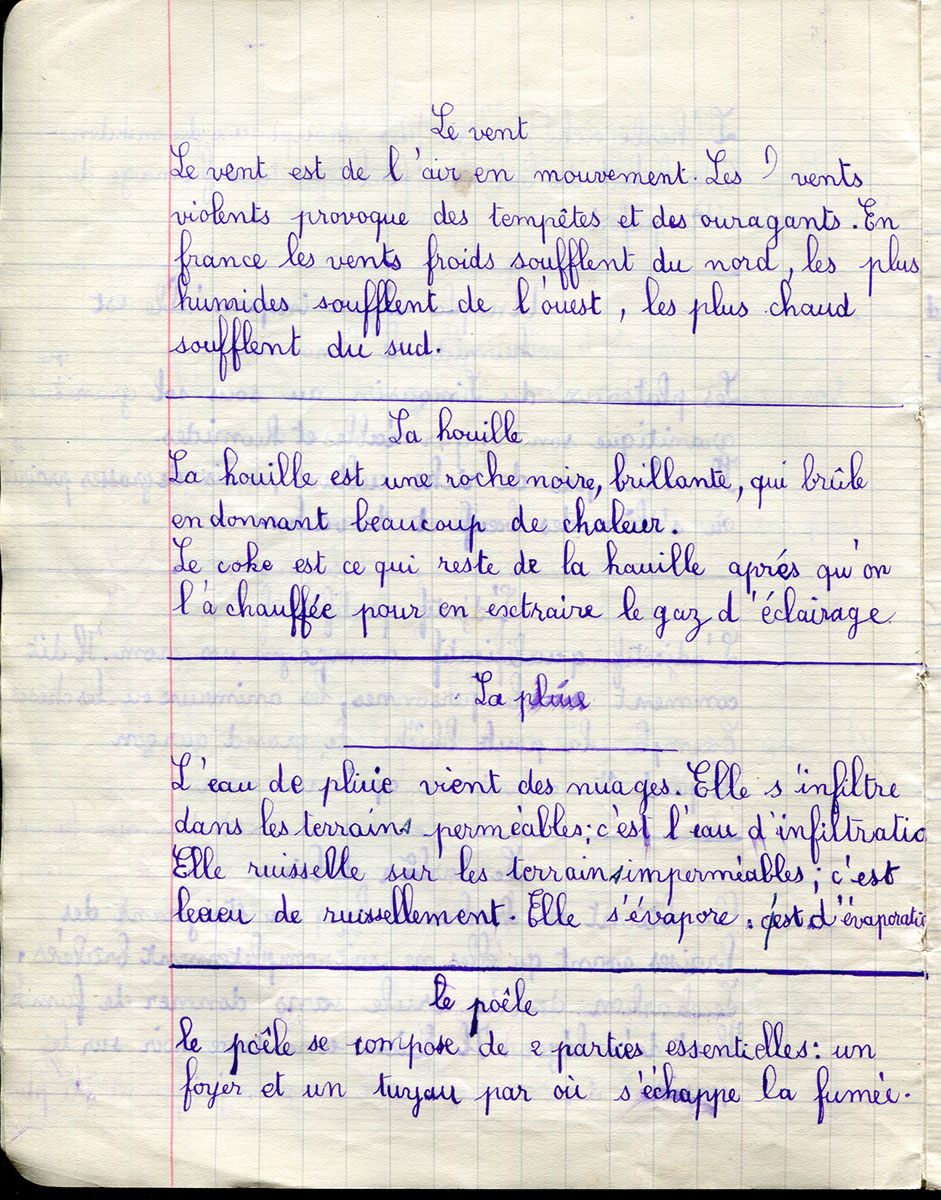 Le vent
Le vent est de l'air en mouvement. Les vents
violents provoque des tempêtes et des ouragants. En
france les vents froids soufflent du nord, les plus
humides soufflent de l'ouest, les plus chaud
soufflent du sud.
La houille
La houille est une roche noire, brillante, qui brûle
en donnant beaucoup de chaleur.
Le coke est ce qui reste de la houille aprés qu'on
l'à chauffée pour en esctraire le gaz d'éclairage
La pluie
L'eau de pluie vient des nuages. Elle s'infiltre
dans les terrains perméables; c'est l'eau d'infiltratio
Elle ruisselle sur les terrains imperméables; c'est
de ruissellement. Elle s'évapore. c'est d'évaporatio
le poêle
le poêle se compose de 2 parties essentielles: un
foyer et un tuyau par où s'échappe la fumée.